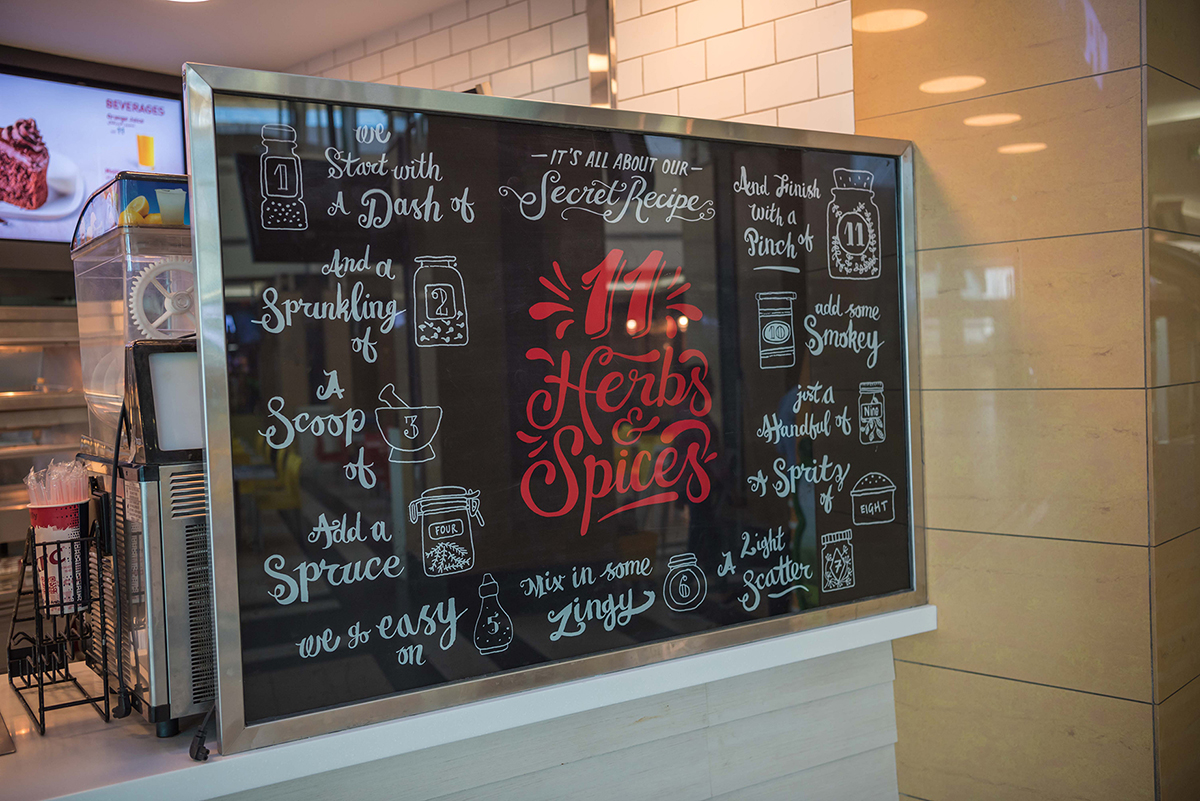 BEVERAGES
Orange Juice
we
Start with
A Dash of
1
And a
Sprinkling
of
2
A
Scoop
of
3
Add a
Spruce
FOUR
we go easy
on
5
IT'S ALL ABOUT OUR
Secret Recipe
11
Herbs
&
Spices
Mix in some
Zingy
6
A Light
Scatter
7
A Spritz
of
EIGHT
just a
Handful of
Nine
add some
Smokey
10
And Finish
with a
Pinch of
11